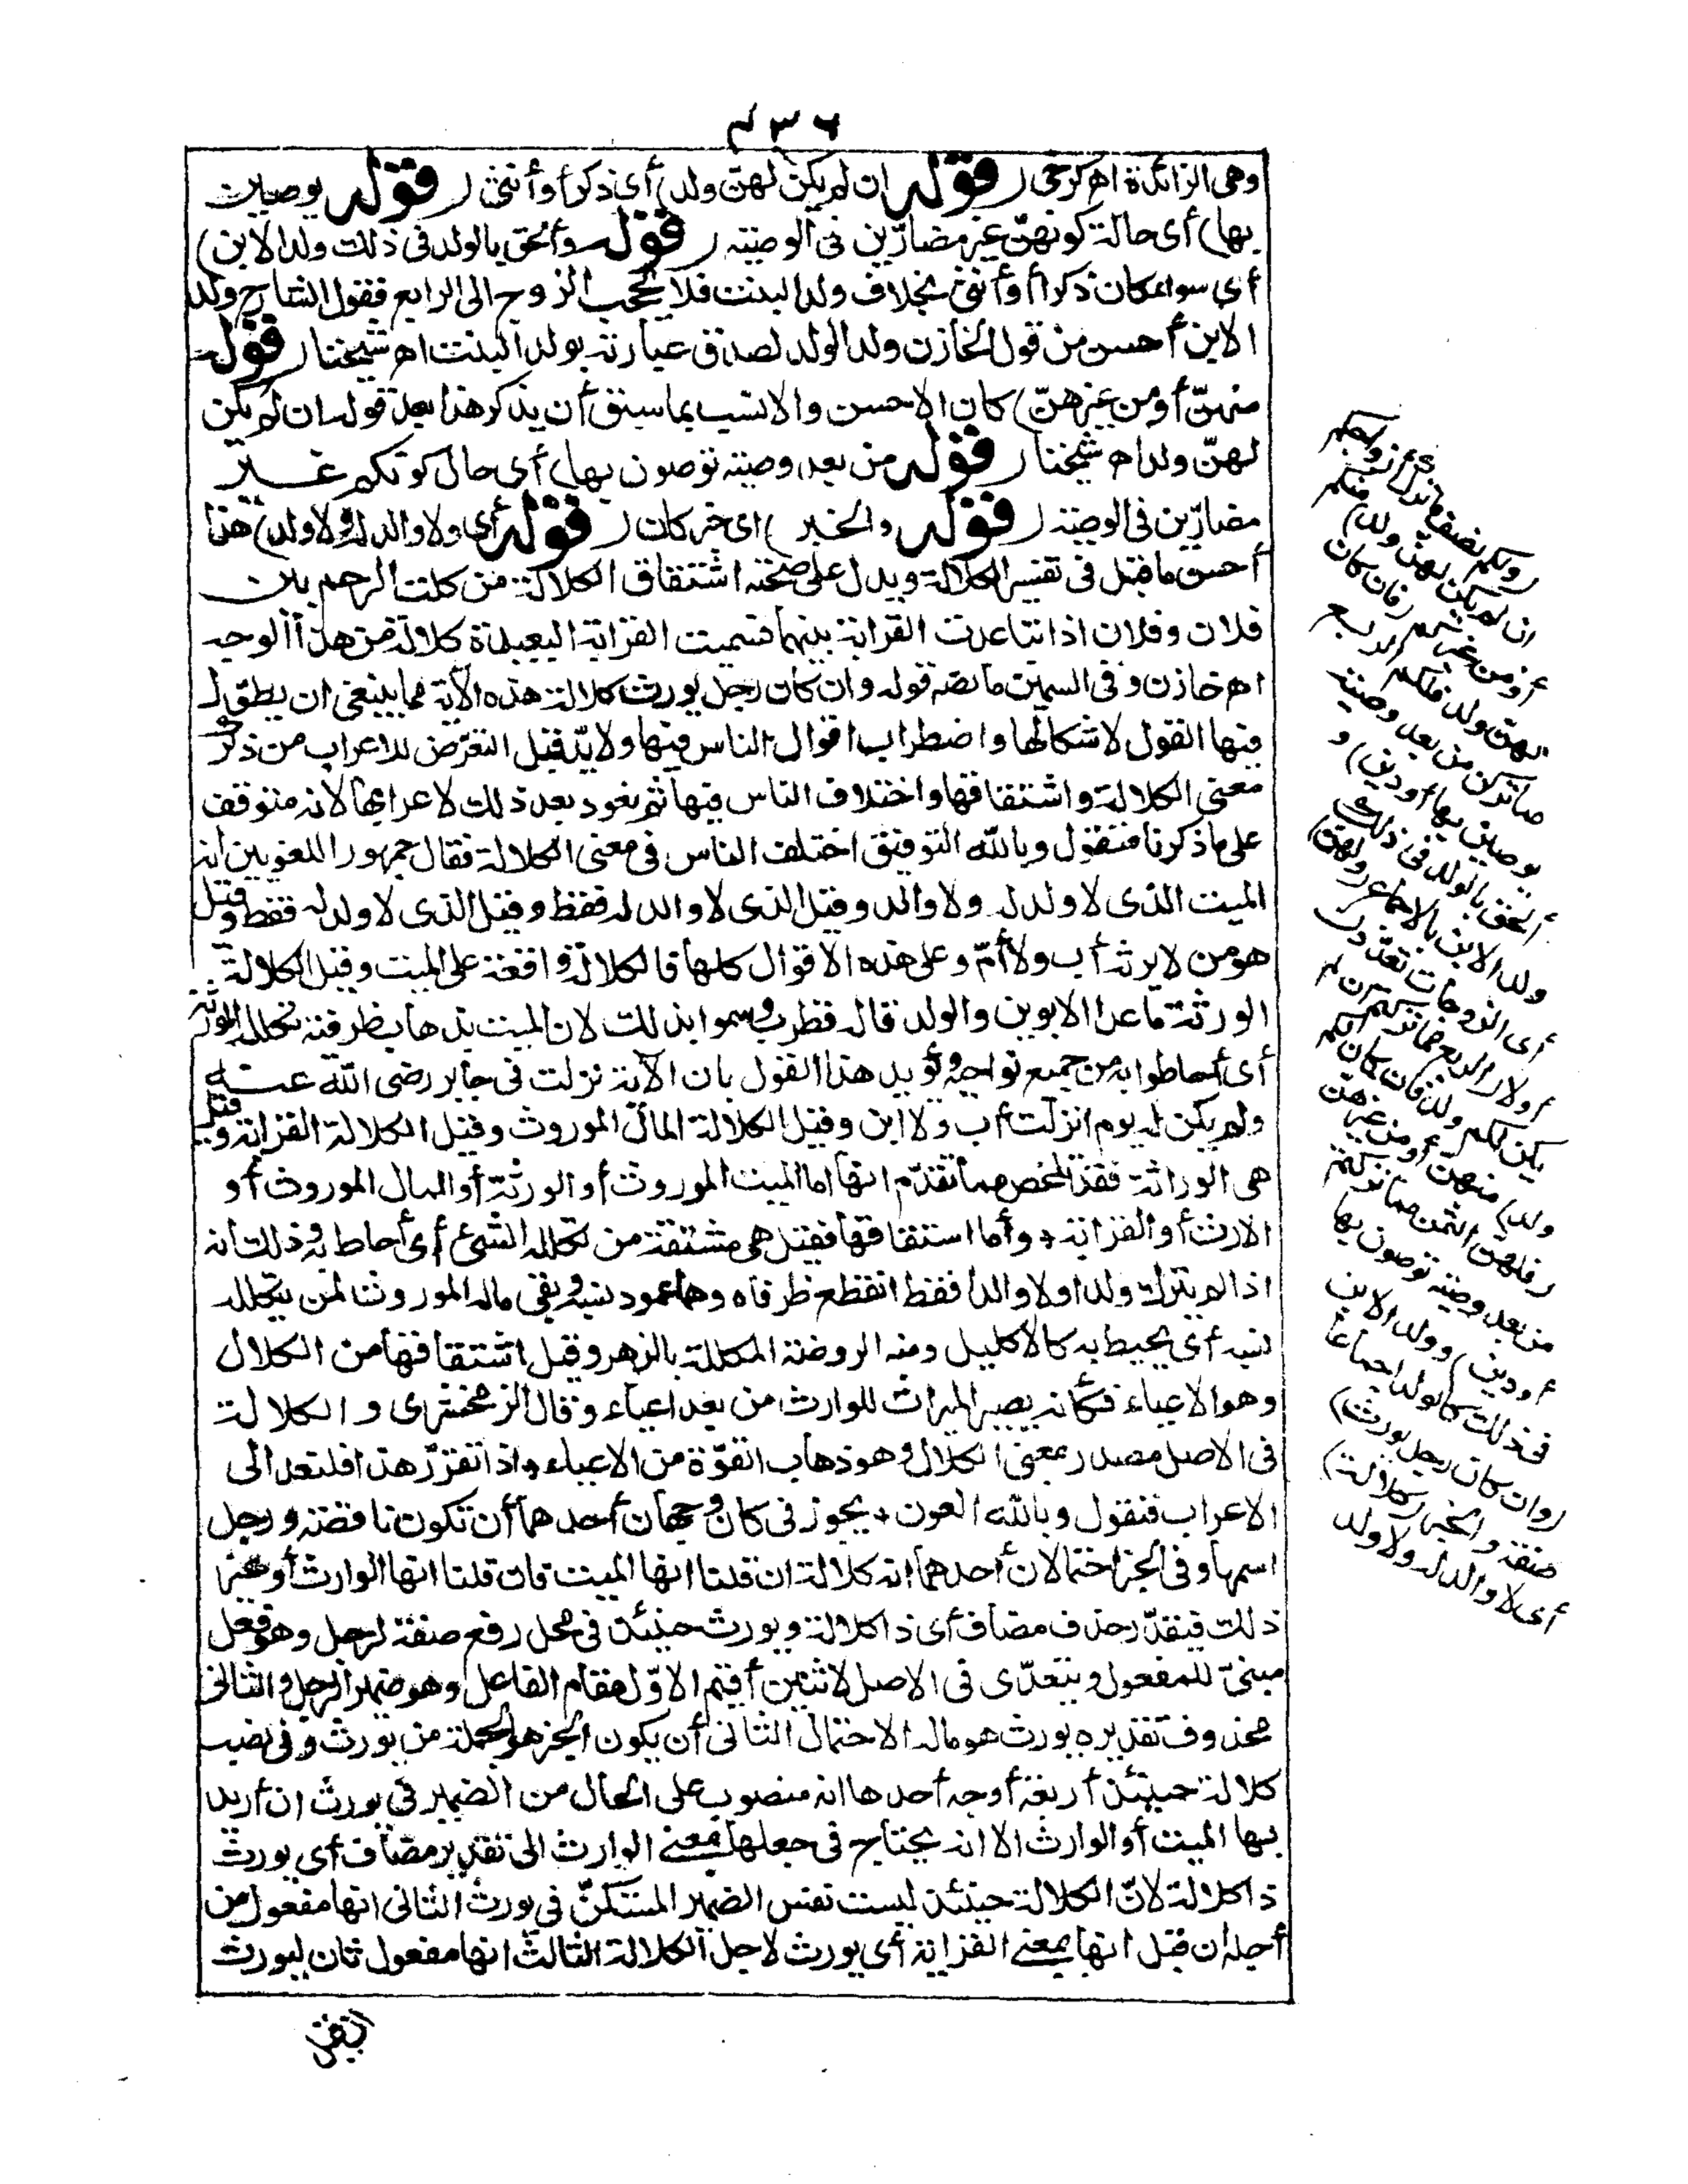 ٤٣٦
وهى الزائدة اهـ كرخى (قوله ان لم يكن لهنّ ولد) أى ذكرأ وأنثى (قوله يوصين
بها) أى حالة كونهنّ غير مضارّين فى الوصية (قوله وألحق بالولد فى ذلك ولد الابن)
أى سواء كان ذكرا أو أنثى بخلاف ولد البنت فلا يحجب الزوج الى الرابع فقول الشارح ولد
الابن أحسن من قول الخازن ولد الولد لصدق عبارته بولد البنت اهـ شيخنا (قوله
منهنّ أو من غيرهنّ) كان الاحسن والانسب بما سبق أن يذكر هذا بعد قوله ان لم يكن
لهنّ ولد اهـ شيخنا (قوله من بعد وصية توصون بها) أى حال كونكم غير
مضارّين فى الوصية (قوله والخبر) اى خبر كان (قوله أى ولا والد له ولا ولد) هذا
أحسن ما قيل فى تفسير الكلالة ويدل على صحته اشتقاق الكلالة من كلت الرحم بين
فلان وفلان اذا تباعدت القرابة بينهما فسميت القرابة البعيدة كلالة من هذا الوجه
اهـ خازن وفى السمين ما نصه قوله وان كان رجل يورث كلالة هذه الآية مما ينبغى ان يطوّل
فيها القول لاشكالها واضطراب اقوال الناس فيها ولا بدّ قبل التعرّض للاعراب من ذكر
معنى الكلالة واشتقاقها واختلاف الناس فيها ثم نعود بعد ذلك لاعرابها لانه متوقف
على ما ذكرنا فنقول وبالله التوفيق اختلف الناس فى معنى الكلالة فقال جمهور اللغويين انه
الميت الذى لا ولد له ولا والد وقيل الذى لا والد له فقط وقيل الذى لا ولد له فقط وقيل
هو من لا يرثه أب ولا أمّ وعلى هذه الاقوال كلها فالكلالة واقعة على الميت وقيل الكلالة
الورثة ما عدا الابوين والولد قاله قطرب وسموا بذلك لان الميت بذهاب طرفيه تكلله الورثة
أى أحاطوا به من جميع نواحيه ويؤيد هذا القول بان الآية نزلت فى جابر رضى الله عنه
ولم يكن له يوم انزلت أب ولا ابن وقيل الكلالة المال الموروث وقيل الكلالة القرابة وقيل
هى الوراثة فقد تلخص مما تقدّم انها اما الميت الموروث أو الورثة أو المال الموروث أو
الارث أو القرابة + وأما اشتقاقها فقيل هى مشتقة من تكلله الشئ أى أحاط به وذلك أنه
اذا لم يترك ولدا ولا والدا فقط انقطع طرفاه وهما عمود نسبه وبقى ماله الموروث لمن يتكلله
نسبه أى يحيط به كالاكليل ومنه الروضة المكللة بالزهر وقيل اشتقاقها من الكلال
وهو الاعياء فكأنه يصير الميراث للوارث من بعد اعياء وقال الزمخشرى و الكلالة
فى الاصل مصدر بمعنى الكلال وهو ذهاب القوّة من الاعياء واذا تقرّر هذا فلنعد الى
الاعراب فنقول وبالله العون + يجوز فى كان وجهان أحدهما أن تكون ناقصة ورجل
اسمها وفى الخبر احتمالان أحدهما انه كلالة ان قلنا انها الميت فان قلنا انها الوارث أو غير
ذلك فيقدّر حذف مضاف أى ذا كلالة ويورث حينئذ فى محل رفع صفة لرجل وهو فعل
مبنىّ للمفعول ويتعدّى فى الاصل لاثنين أقيم الاوّل مقام الفاعل وهو ضمير الرجل والثانى
محذوف تقديره يورث هو ماله الاحتمال الثانى أن يكون الخبر هو الجملة من يورث وفى نصب
كلالة حينئذ أربعة أوجه أحدها انه منصوب على الحال من الضمير فى يورث ان أريد
بها الميت أو الوارث الا انه يحتاج فى جعلها بمعنى الوارث الى تقدير مضاف أى يورث
ذا كلالة لانّ الكلالة حينئذ ليست نفس الضمير المستكنّ فى يورث الثانى انها مفعول من
أجله ان قيل انها بمعنى القرابة أى يورث لاجل الكلالة الثالث انها مفعول ثان ليورث
(ولكم نصف ما ترك أزواجكم
ان لم يكن لهنّ ولد) منكم
أو من غيركم (فان كان
لهنّ ولد فلكم الربع
مما تركن من بعد وصية
يوصين بها أو دين) و
ألحق بالولد فى ذلك
ولد الابن بالاجماع (ولهنّ)
أى الزوجات تعدّدن
أولا (الربع مما تركتم ان لم
يكن لكم ولد فان كان لكم
ولد) منهنّ أو من غيرهنّ
(فلهنّ الثمن مما تركتم
من بعد وصية توصون بها
أو دين) وولد الابن
فى ذلك كالولد اجماعا
(وان كان رجل يورث)
صفة والخبر (كلالة)
أى لا والد له ولا ولد